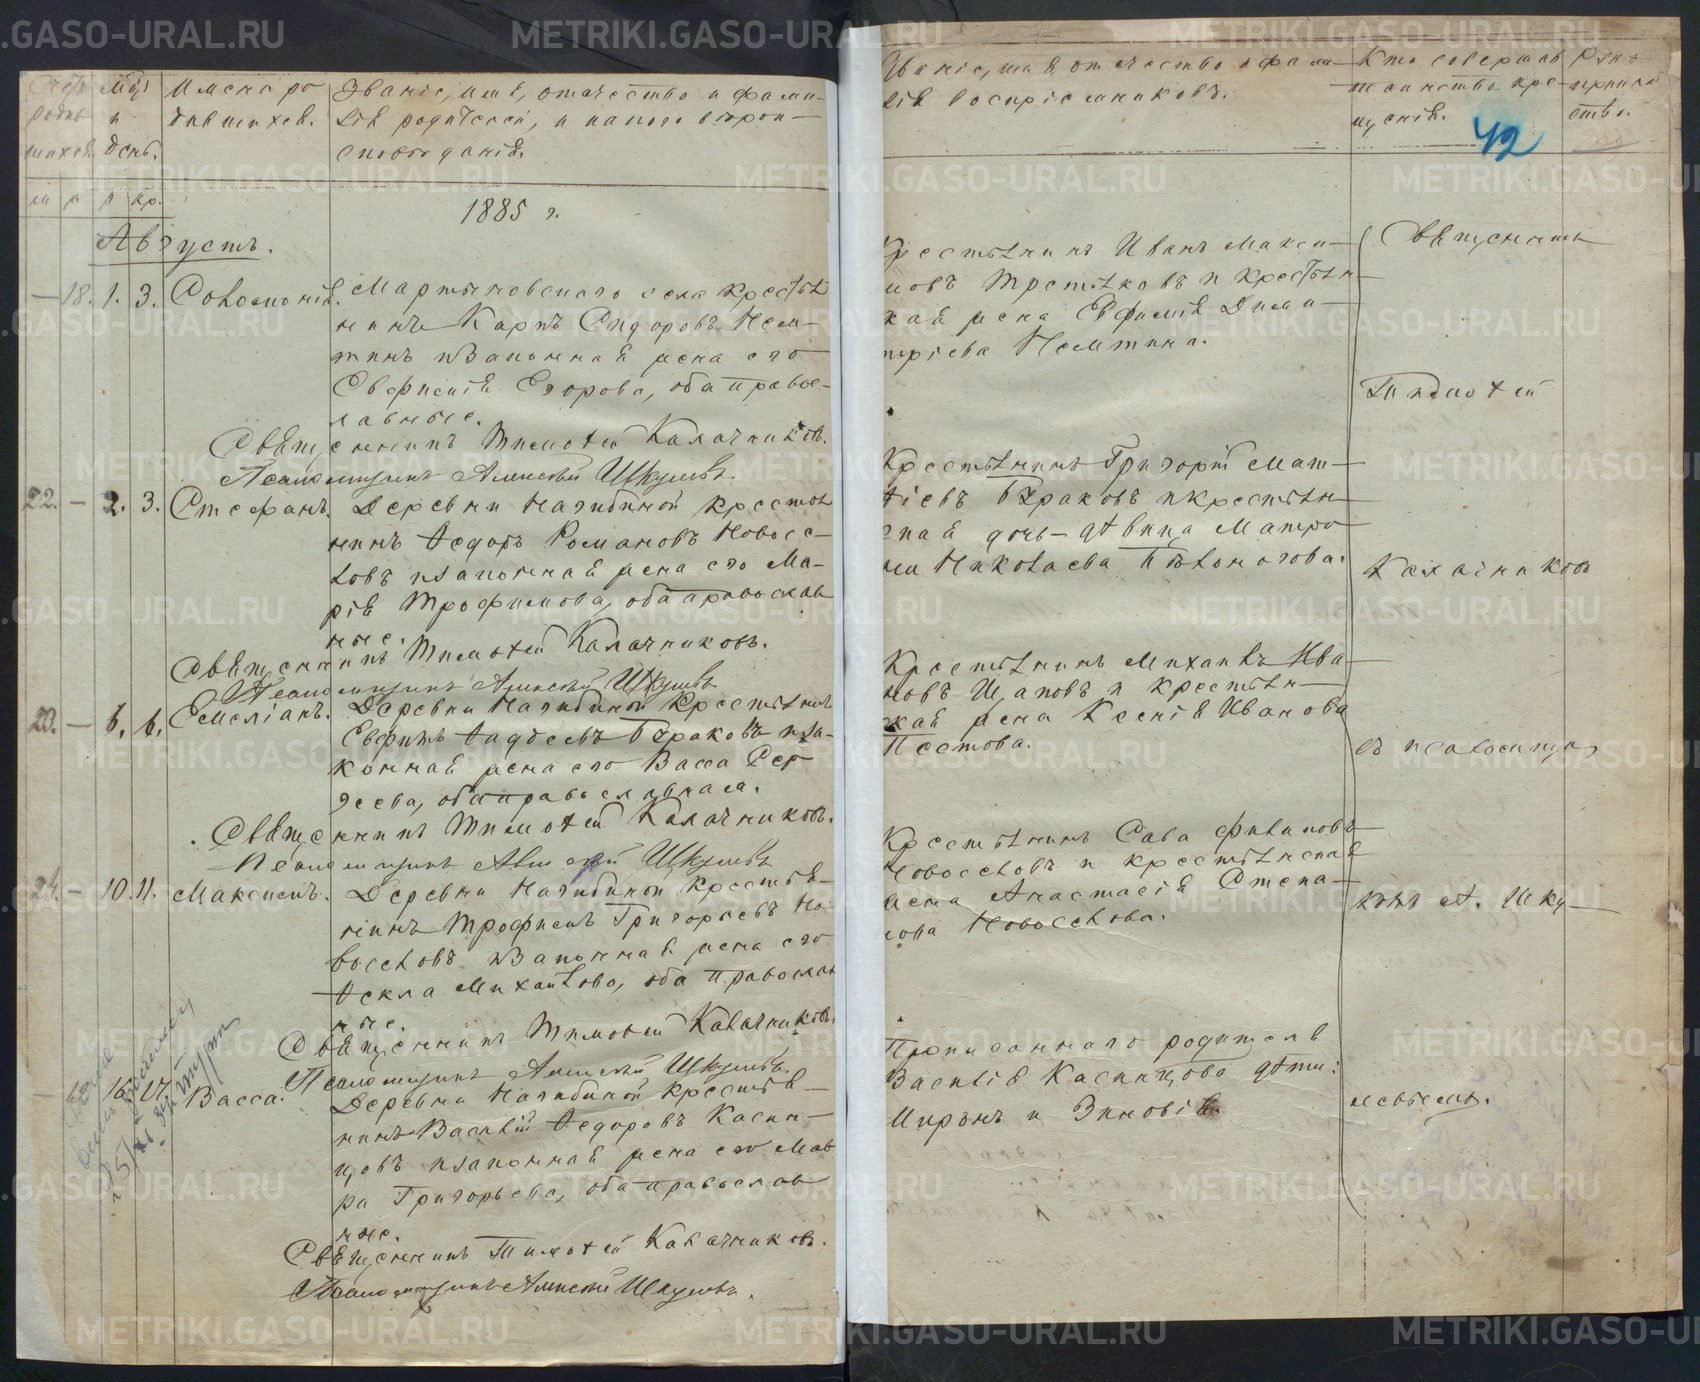 METRIKI.GASO-URAL.RU
Имена ро
дившихся.
Званіе, имя, отчество и фами-
лія родителей, и какого вѣрои-
сповѣданія.
день.
м р р кр.
1885 г.
Августъ.
— 18. 1. 3. Соломонія. Мартыновскаго села крестья
нинъ Карпъ Сидоровъ Нем-
тинъ и законная жена его
Евфимія Егорова, оба правос-
лавные.
Священникъ Тимоѳей Калачниковъ.
Псаломщикъ Алексѣй Шкулевъ
22. — 2. 3. Стефанъ. Деревни Нагибиной крестья
нинъ Ѳедоръ Романовъ Новосе-
ловъ и законная жена его Ма-
рія Трофимова, оба православ
ные.
Священникъ Тимоѳей Калачниковъ.
Псаломщикъ Алексѣй Шкулевъ
— 6. 6. Емеліанъ. Деревни Нагибиной крестьянинъ
Ѳадѣевъ Бураковъ и за-
конная жена его Васса Сер
геева, оба православные.
Священникъ Тимоѳей Калачниковъ.
Псаломщикъ Алексѣй Шкулевъ
24. — 10. 11. Максимъ. Деревни Нагибиной крестья-
нинъ Трофимъ Григорьевъ Но-
воселовъ и законная жена его
Ѳекла Михайлова, оба православ
ные.
Священникъ Тимоѳей Калачниковъ.
Псаломщикъ Алексѣй Шкулевъ
Васса. Деревни Нагибиной крестья-
нинъ Василій Ѳедоровъ Касин-
цовъ и законная жена его Мав
ра Григорьева, оба православ
ные.
Священникъ Тимоѳей Калачниковъ.
Псаломщикъ Алексѣй Шкулевъ.
Званіе, имя, отчество и фами-
лія воспріемниковъ.
Кто совершалъ
таинство кре-
щенія.
42
Крестьянинъ Иванъ Макси-
мовъ Третьяковъ и крестьян-
кая жена Евфимія Дими-
тріева Немтина.
Крестьянинъ Григорій Мат-
ѳіевъ Бураковъ и крестьян-
ская дочь-дѣвица Матро
на Николаева Пѣлоногова.
Крестьянинъ Михаилъ Ива-
новъ Щаповъ и крестьян-
кая жена Ксенія Иванова
Пестова.
Крестьянинъ Сава Филиповъ
Новоселовъ и крестьянская
жена Анастасія Степа-
нова Новоселова.
Прописаннаго родителя
Василія Касинцова дѣти:
Миронъ и Зиновія.
Священникъ
Тимоѳей
Калачниковъ
съ псаломщи
комъ А. Шку-
левымъ.